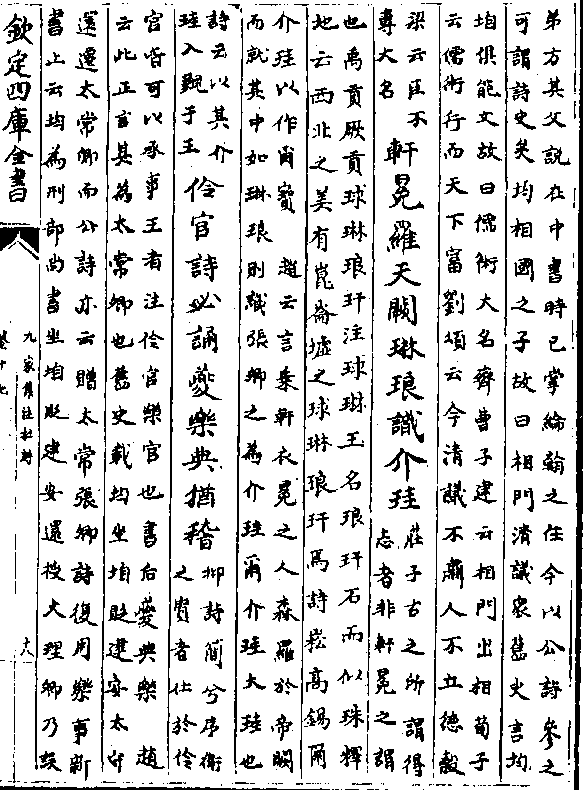 弟方其父説在中書時已掌綸翰之任今以公詩參之
可謂詩史矣均相國之子故曰相門清議衆舊史言均
垍俱能文故曰儒術大名齊曹子建云相門出相荀子
云儒術行而天下富劉頌云今清議不肅人不立德毅
梁云臣不
專大名
軒冕羅天闕琳琅識介珪
莊子古之所謂得
志者非軒冕之謂
也禹貢厥貢球琳琅玕注球琳王名琅玕石而似珠釋
地云西北之美有崑崙墟之球琳琅玕焉詩崧高錫爾
介珪以作爾寶趙云言乗軒衣冕之人森羅於帝闕
而就其中如琳琅則識張卿之為介珪爾介珪大珪也
詩云以其介
珪入覲于王
伶官詩必誦夔樂典猶稽
邶詩簡兮序衛
之賢者仕於伶
官皆可以承事王者注伶官樂官也書后夔典樂趙
云此正言其為太常卿也舊史載均坐垍貶建安太守
還遷太常卿而公詩亦云贈太常張卿詩復用樂事新
書上云均為刑部尚書坐垍貶建安還授大理卿乃誤
欽定四庫全書
九家集注杜詩
卷十七
十八